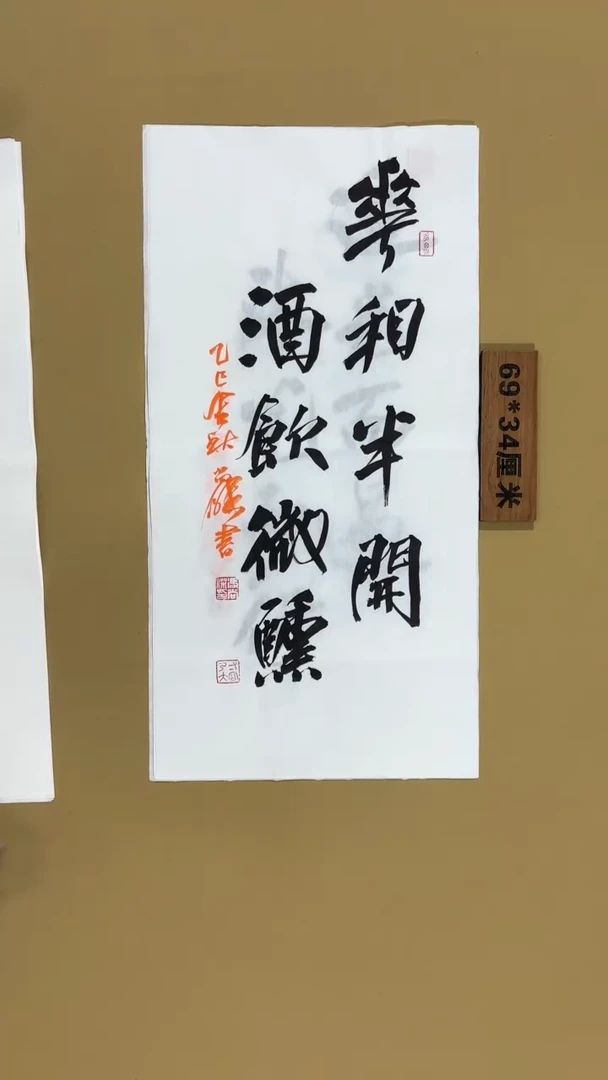 華相半開
酒飲微醺
乙巳金秋
書
69*34厘米